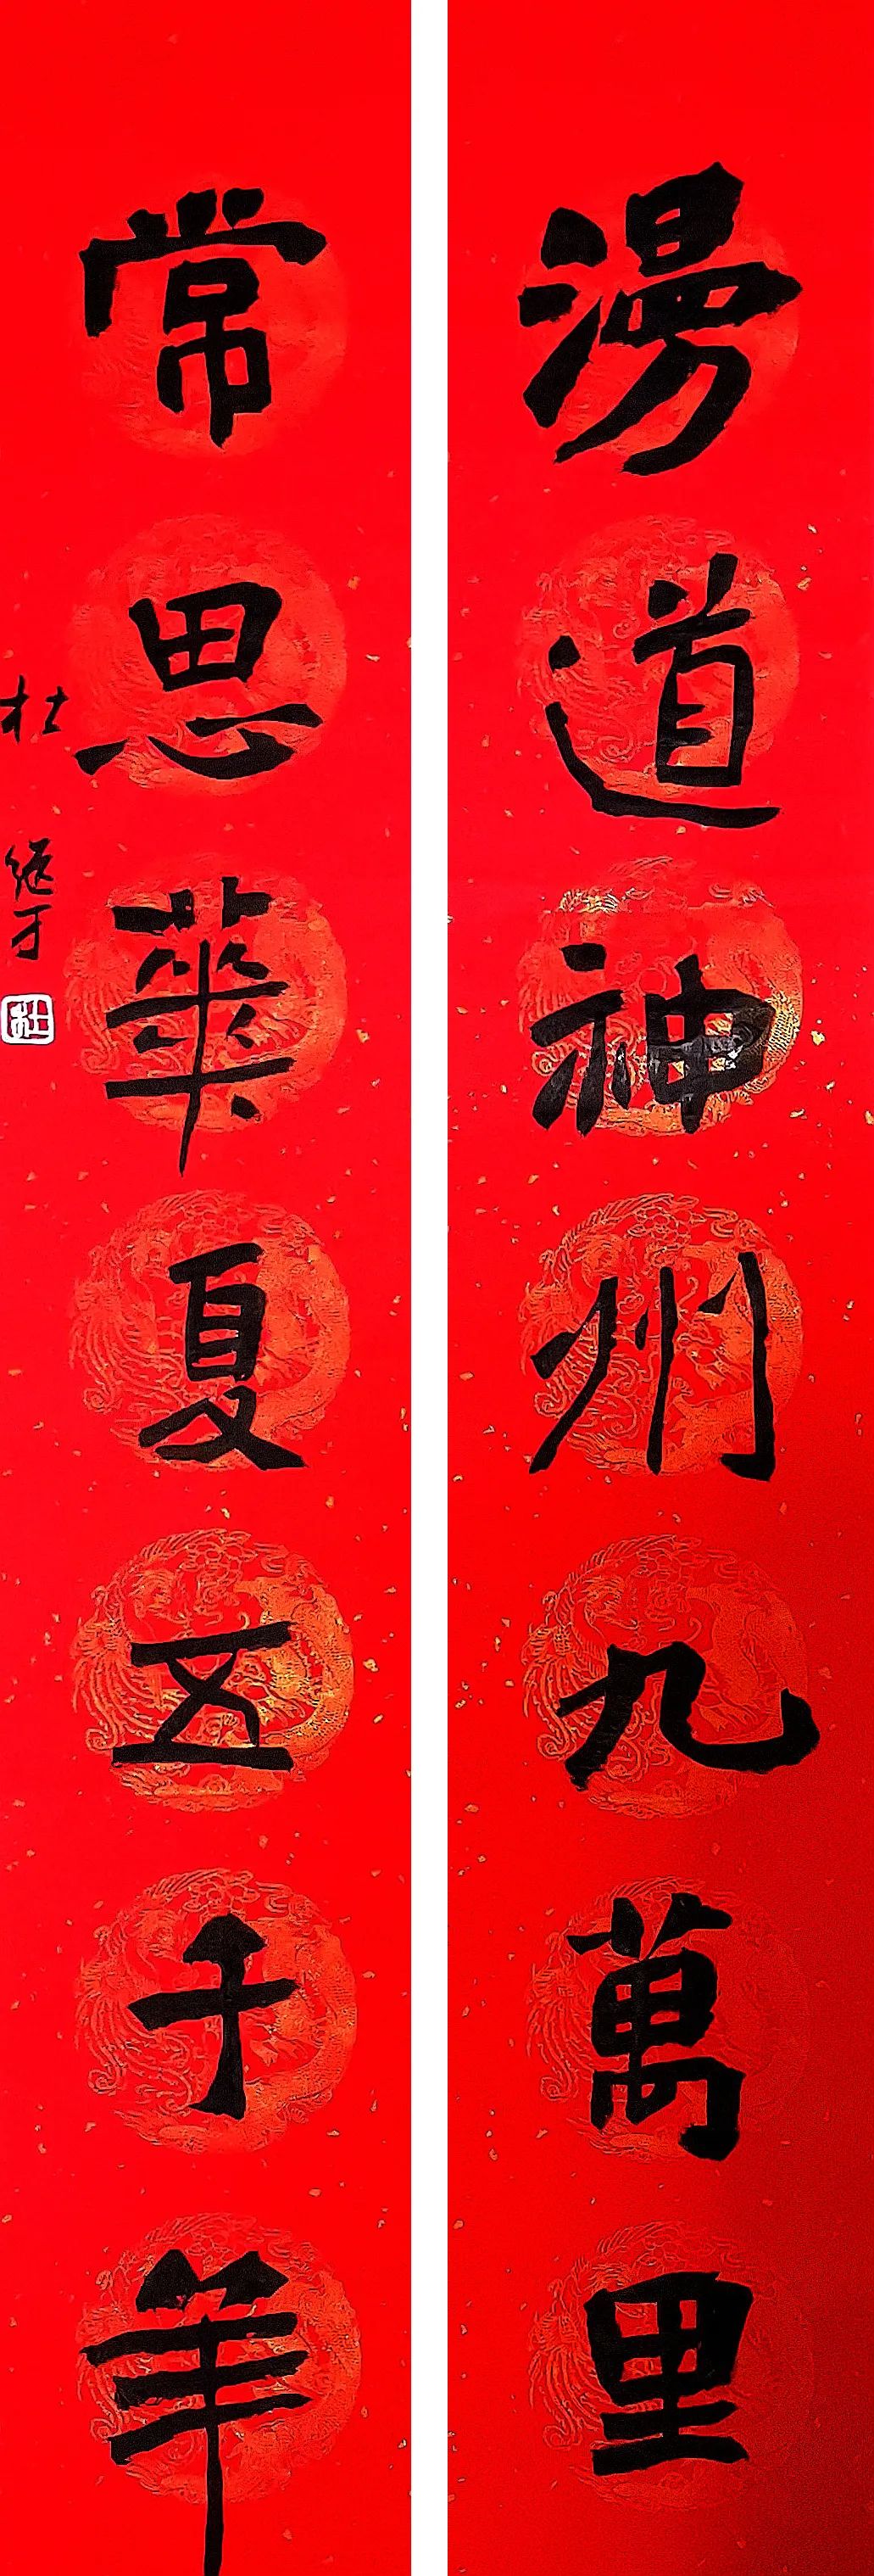 漫道神州九萬里
常思華夏五千年
杜继才
杜